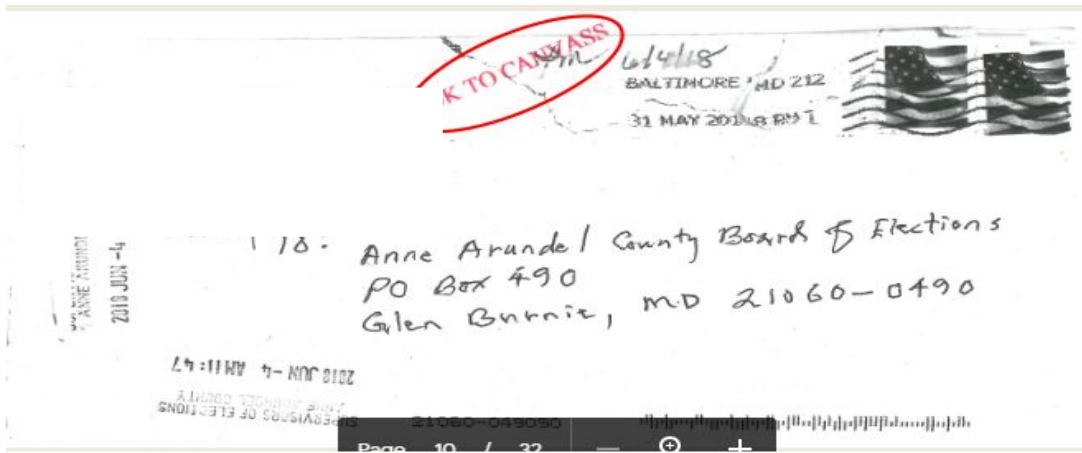 K TO CANVASS
6/4/18
BALTIMORE MD 212
31 MAY 2018 PM 1
Anne Arundel County Board of Elections
PO Box 490
Glen Burnie, MD 21060-0490
ANNE ARUNDE
2018 JUN -4
2018 JUN -4 AM 11:47
ANNE ARUNDEL COUNTY
SUPERVISORS OF ELECTIONS
21060-049090
Page 10 / 32